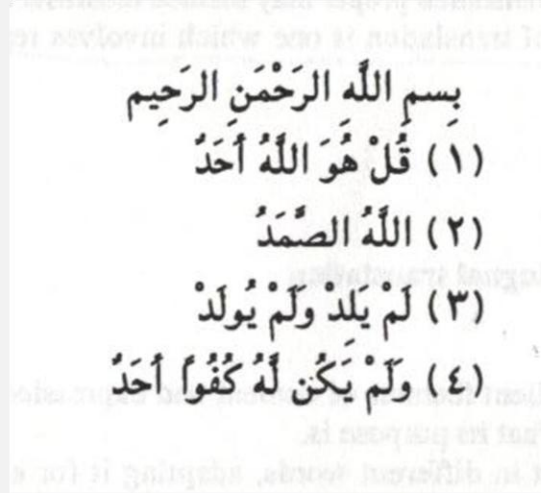 بِسمِ اللَّهِ الرَحْمَنِ الرَحِيم
(١) قُلْ هُوَ اللَّهُ أَحَدٌ
(٢) اللَّهُ الصَّمَدُ
(٣) لَمْ يَلِدْ وَلَمْ يُولَدْ
(٤) وَلَمْ يَكُن لَّهُ كُفُوًا أَحَدٌ